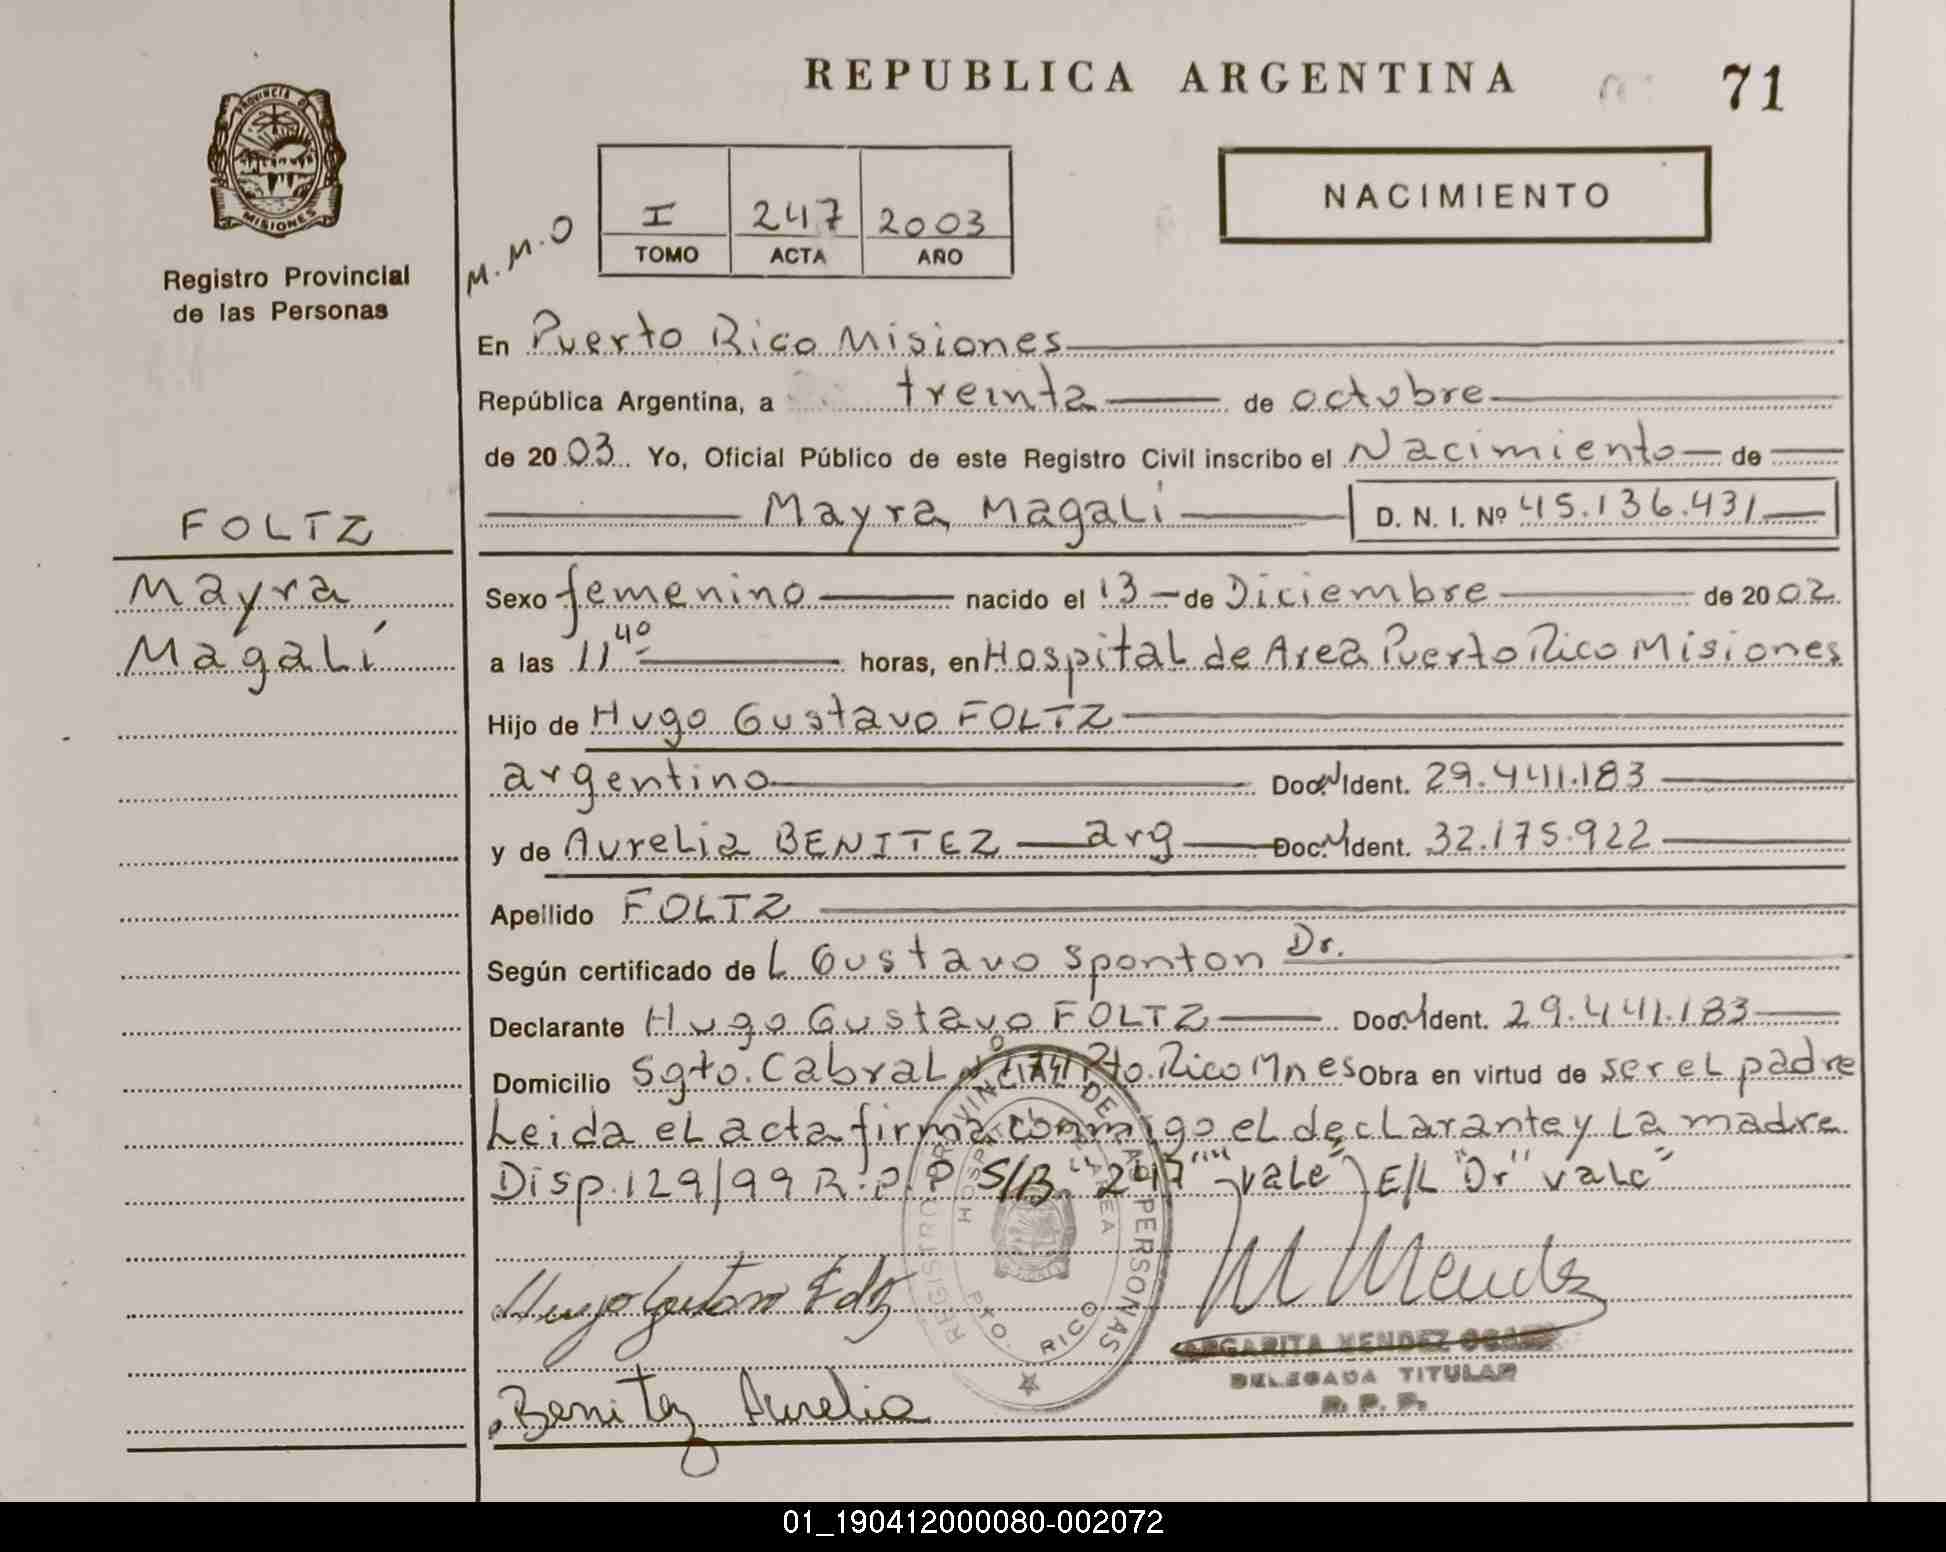 REPUBLICA ARGENTINA
71
PROVINCIA DE
MISIONES
Registro Provincial
de las Personas
M.M.O
I 247 2003
TOMO ACTA AÑO
NACIMIENTO
En Puerto Rico Misiones
República Argentina, a treinta de octubre
de 2003. Yo, Oficial Público de este Registro Civil inscribo el Nacimiento de
Mayra Magalí D. N. I. Nº 45.136.431
FOLTZ
Mayra
Magalí
Sexo femenino nacido el 13 de Diciembre de 2002.
a las 11 40 horas, en Hospital de Area Puerto Rico Misiones
Hijo de Hugo Gustavo FOLTZ
argentino Doc. N Ident. 29.441.183
y de Aurelia BENITEZ arg Doc. N Ident. 32.175.922
Apellido FOLTZ
Según certificado de L Gustavo Sponton Dr.
Declarante Hugo Gustavo FOLTZ Doc. N Ident. 29.441.183
Domicilio Sgto. Cabral Pto. Rico Mnes Obra en virtud de ser el padre
Leida el acta firma conmigo el declarante y La madre
Disp. 129/99 R.P.P S/B. "247" "vale" E/L "Dr" vale"
REGISTRO PROVINCIAL DE LAS PERSONAS
HOSPITAL AREA
PTO. RICO
Hugo Gustavo Foltz
M Mendez
MARGARITA MENDEZ
DELEGADA TITULAR
R. P. P.
Benitez Aurelia
01_190412000080-002072